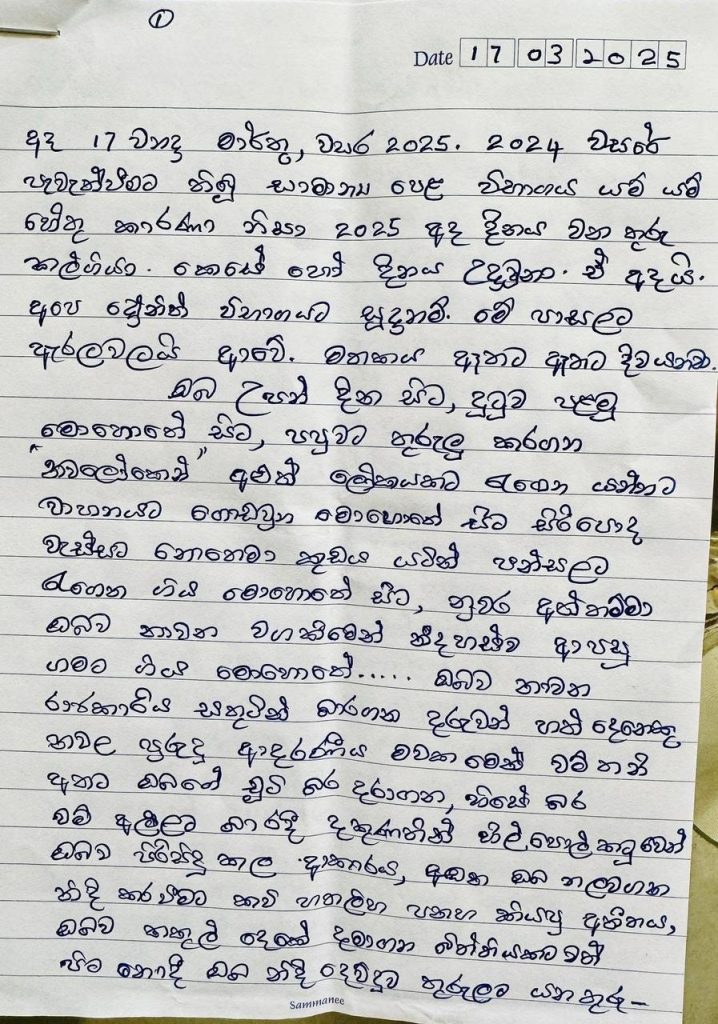 ①
Date 17 03 2025
අද 17 වනදා මාර්තු, වසර 2025. 2024 වසරේ
පැවැත්වීමට තිබූ සාමාන්‍ය පෙළ විභාගය යම් යම්
හේතු කාරණා නිසා 2025 අද දිනය වන තුරු
කල්ගියා. කෙසේ හෝ දිනය උදාවුනා. ඒ අදයි.
අපෙ විභාගයට සූදානම්. මේ පාසලට
ඇරලවලයි ආවේ. මතකය ඈතට ඈතට දිව යනවා.
ඔබ උපන් දින සිට, දුටුව පළමු
මොහොතේ සිට, පපුවට තුරුලු කරගන
"නවලෝකෙන්" අළුත් ලෝකයකට රැගෙන යන්නට
වාහනයට ගොඩවුන මොහොතේ සිට සිරිපොද
වැස්සට නොතෙමා කුඩය යටින් පන්සලට
රැගෙන ගිය මොහොතේ සිට, නුවර අත්තම්මා
ඔබව නාවන වගකීමෙන් නිදහස්ව ආපසු
ගමට ගිය මොහොතේ..... ඔබව නාවන
රාජකාරිය සතුටින් බාරගන දරුවන් හත් දෙනෙකු
නාවල පුරුදු ආදරණීය මවක මෙන් වම් තනි
අතට ඔබගේ චූටි බර දරාගන, හිසේ බර
වම් අල්ලට බාරදී දකුණතින් හිල්, පොල් කටුවෙන්
ඔබව පිරිසිදු කල ආකාරය, අඬන ඔබ නලවගන
නිදි කරවීමට කවි හතලිහ පනහ කියපු අතීතය,
ඔබව කකුල් දෙකේ දමාගන බිත්තියකටවත්
පිට නොදී ඔබ නිදි දෙව්දුව තුරුලට යන තුරු –
Sammanee